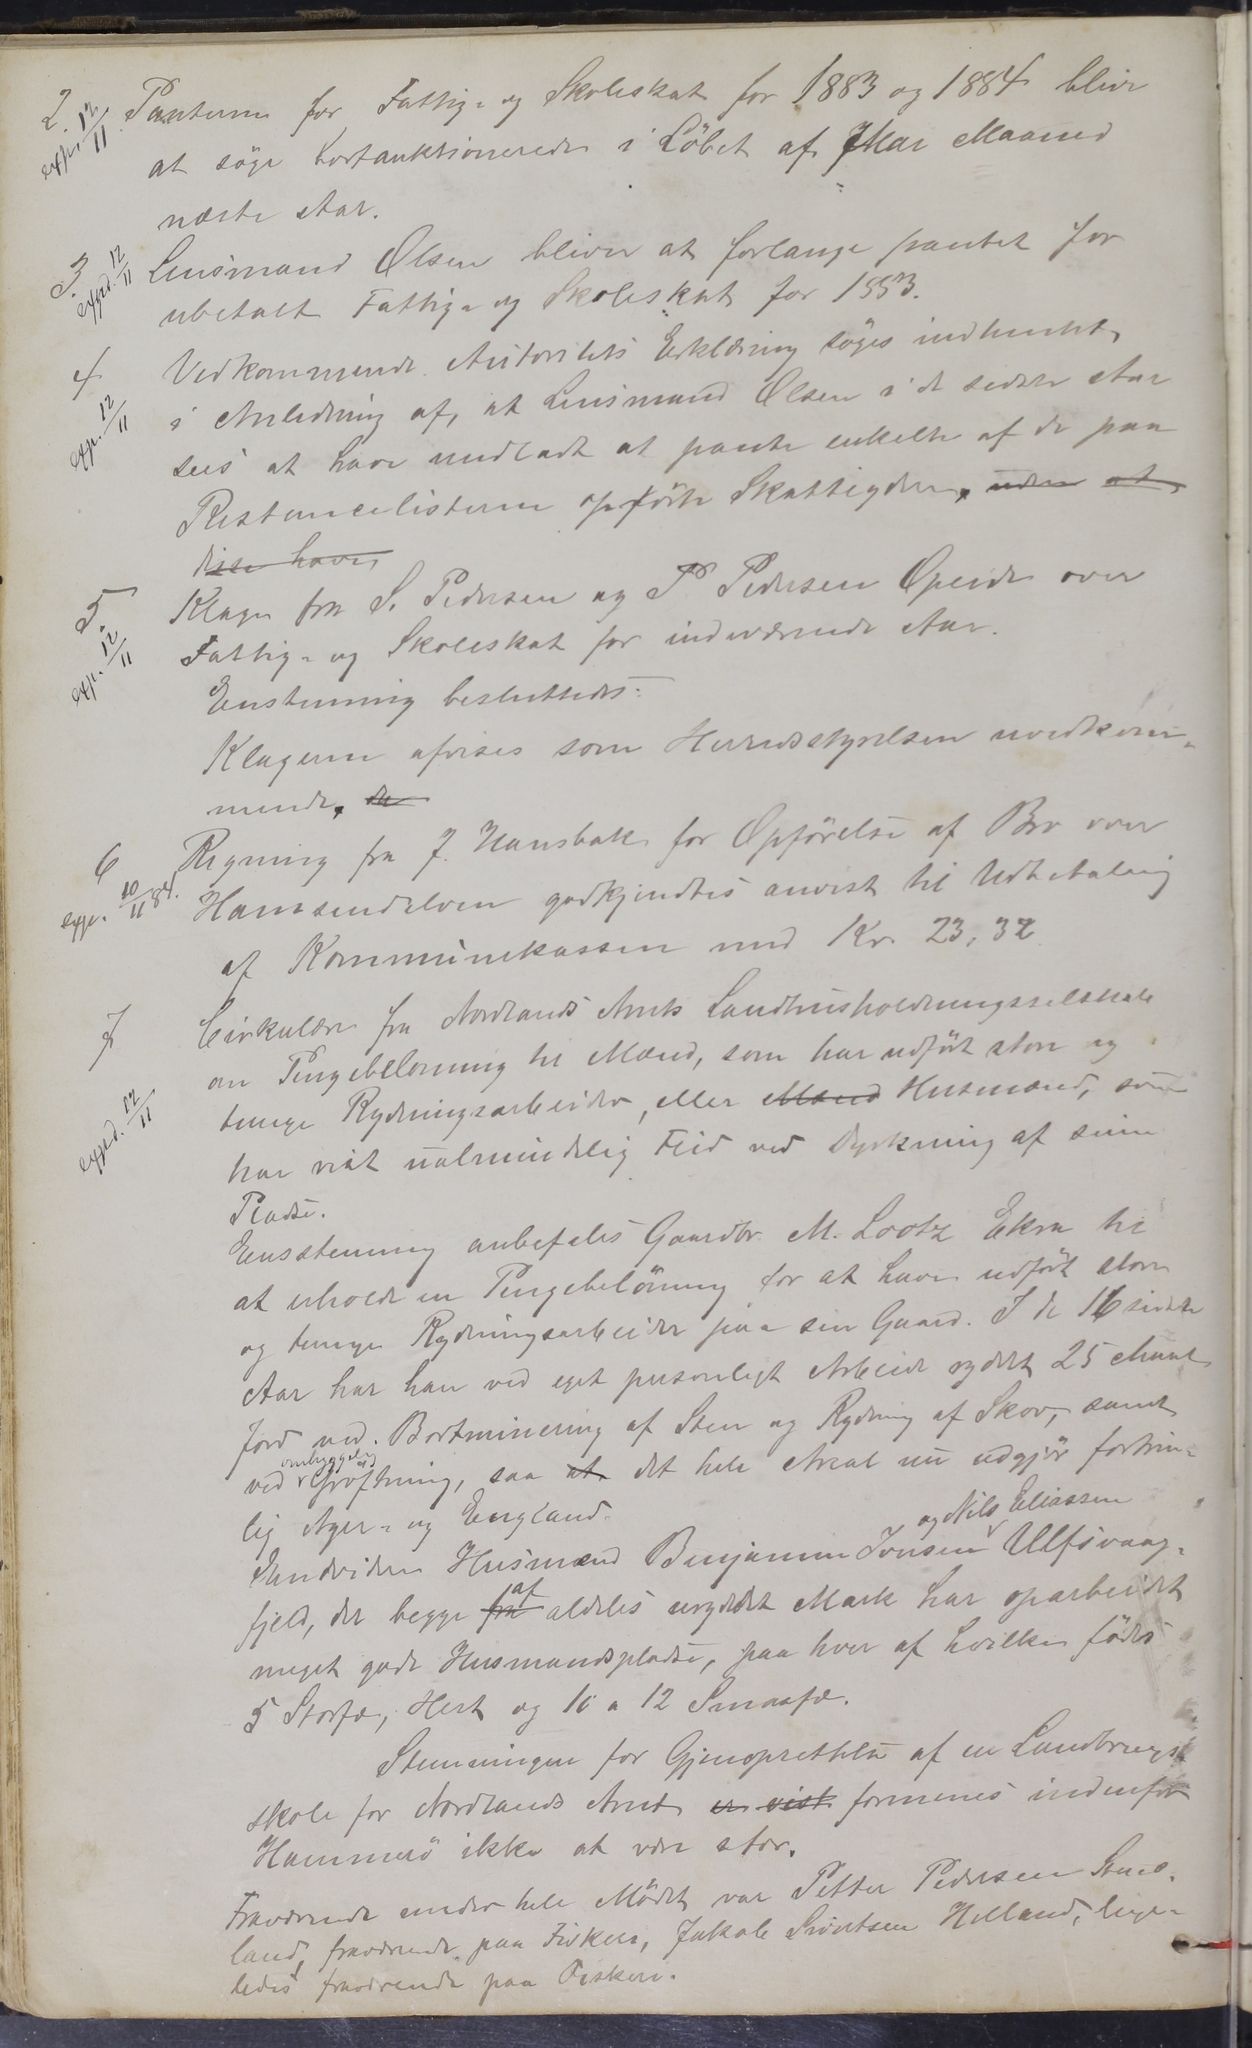 2. Panterne for Fattig- og Skoleskat for 1883 og 1884 blive
exp. 12/11
at søge bortauktionerede i Löbet af Mai Maaned
næste Aar.
3. Lensmand Olsen bliver at forlange pantet for
exped. 12/11
ubetalt Fattig- og Skoleskat for 1883.
4 Vedkommende Autoritets Erklæring søges indhentet
exp. 12/11
i Anledning af, at Lensmand Olsen i de sidste Aar
sees at have undladt at pante enkelte af de paa
Restancelisterne opførte Skatteydere, uden at
disse have
5. Klage fra S. Pedersen og P. Pedersen Opeide over
exp. 12/11
Fattig- og Skoleskat for indeværende Aar.
Enstemmig besluttedes:
Klagerne afvises som Herredsstyrelsen uvedkom-
mende, da
6 Regning fra J. Hansbak for Opførelse af Bro over
exp. 10/11 84.
Hamsundelven godkjendtes anvist til Udbetaling
af Kommunekassen med Kr. 23,32
7 Cirkulære fra Nordlands Amts Landhusholdningsselskab
exped. 12/11
om Pengebelönning til Mænd, som har udført store og
tunge Rydningsarbeider, eller Mænd Husmænd, som
har vist ualmindelig Flid ved Dyrkning af sine
Pladse.
Eenstemmig anbefales Gaardbr. M. Lootz Ekra til
at erholde en Pengebelönning for at have udført store
og tunge Rydningsarbeider paa sin Gaard. I de 16 sidste
Aar har han ved eget personligt Arbeide ryddet 25 Maal
Jord ved Bortminering af Sten og Rydning af Skov, samt
ved omhyggelig Gröftning, saa at det hele Areal nu udgjør fortrin-
lig Ager- og England.
Endvidere Husmænd Benjamin Jonsen og Nils Eliassen Ulfsvaag-
fjeld, der begge fra af aldeles uryddet Mark har oparbeidet
meget gode Husmandspladse, paa hver af hvilke födes
5 Storfæ, Hest og 10 a 12 Smaafæ.
Stemningen for Gjenoprettelse af en Landbrugs-
skole for Nordlands Amt er vist formenes indenfor
Hammerö ikke at være stor.
Fraværende under hele Mödet var Petter Pedersen
land, fraværende paa Fiskeri, Jakob Sivertsen Helland, lige-
ledes fraværende paa Fiskeri.